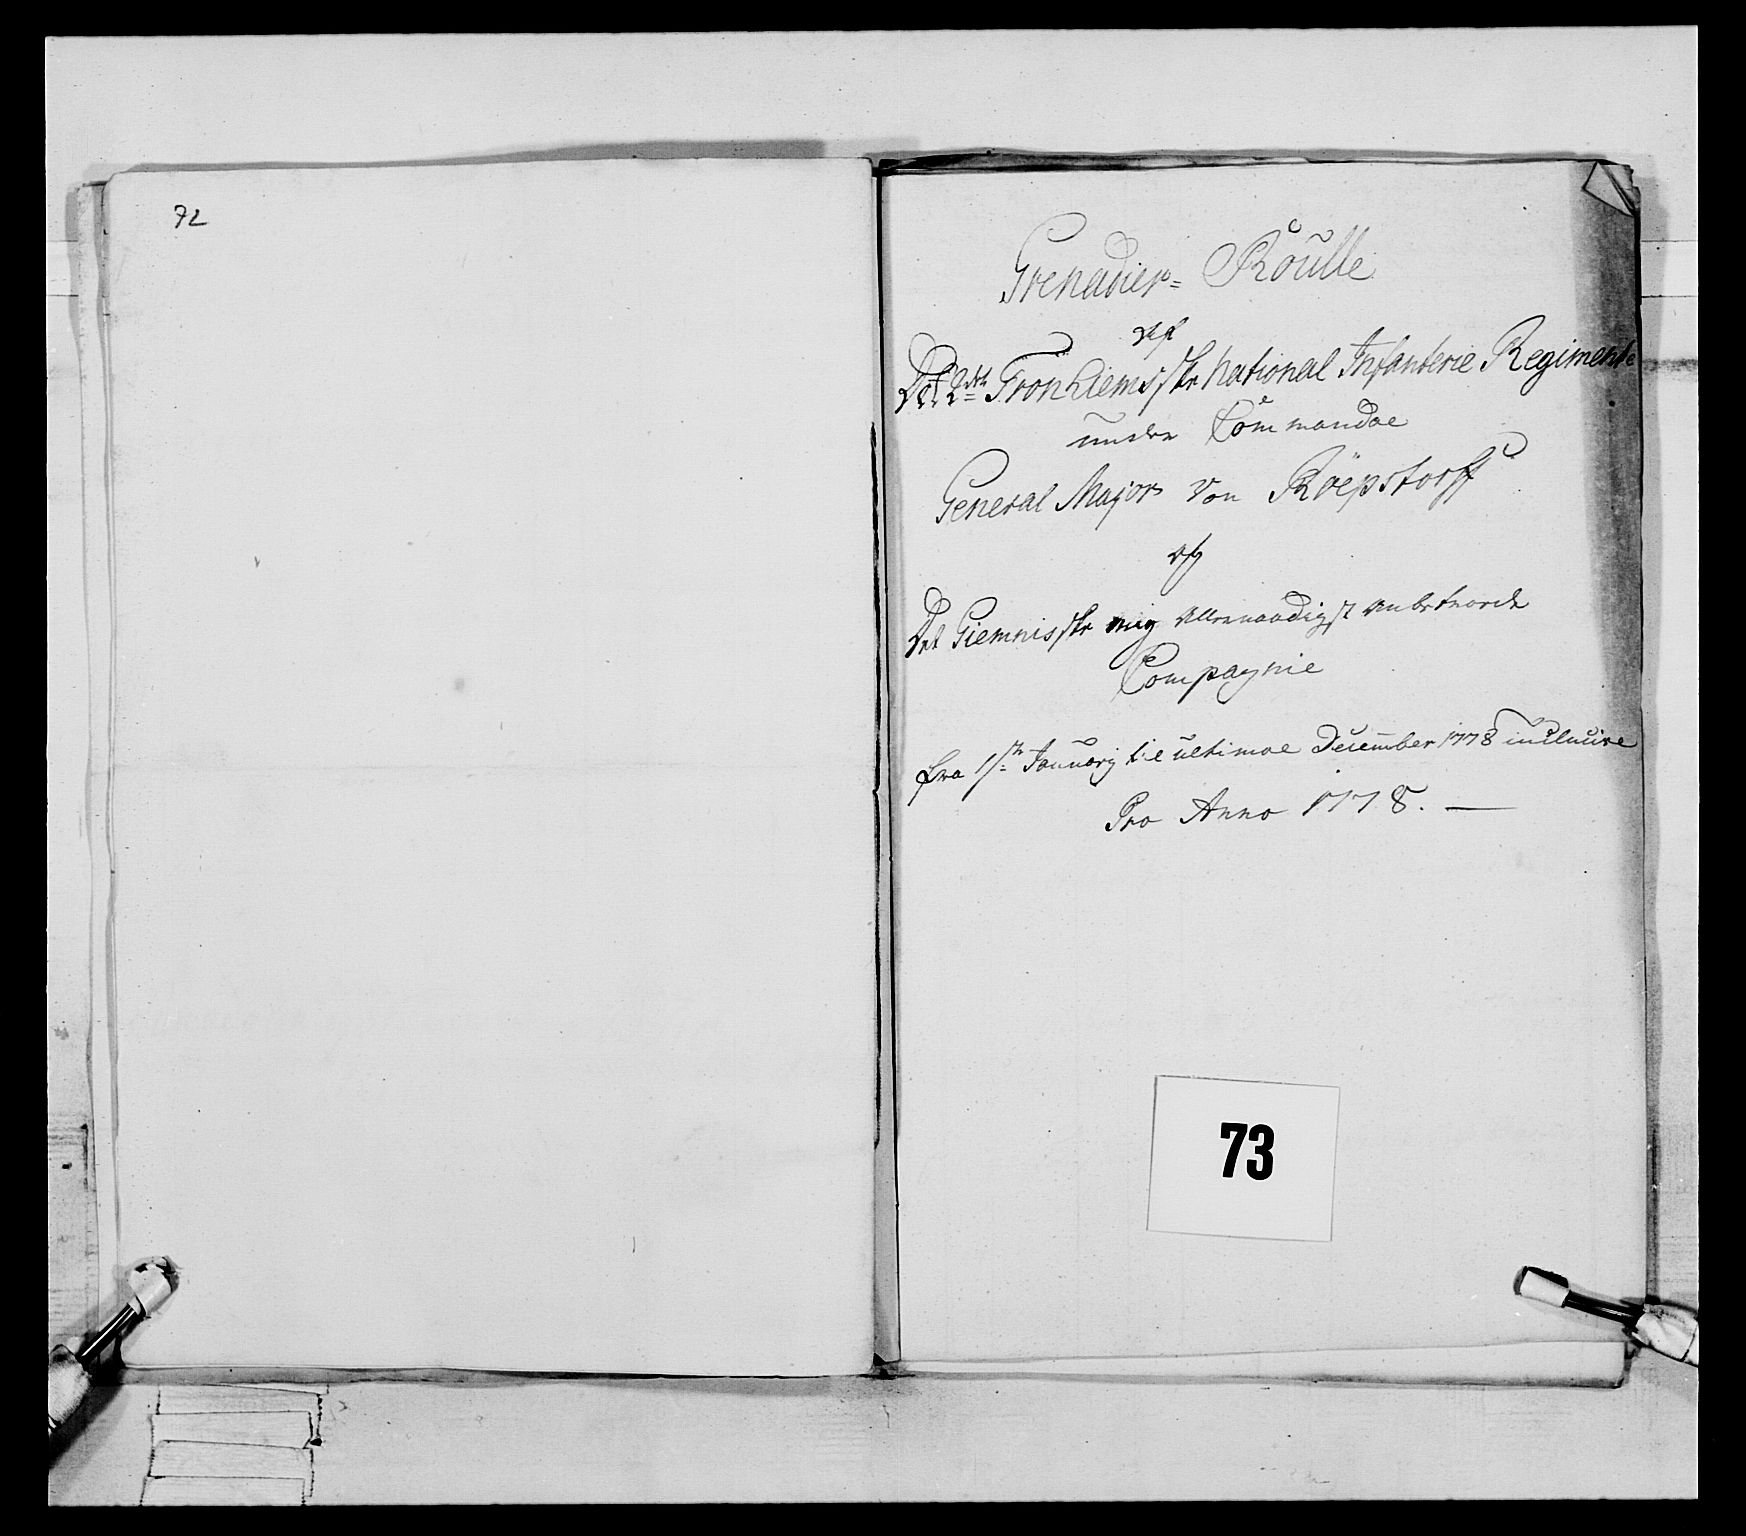 72
Grenadier= Roulle
af
Det 2det Tronhiemsske national Infanterie Regimente
under Commando
General Major von Röepstorff
og
Det Giemnisske mig allernaadigst anbetroede
Compagnie
fra 1ste January til ultimoe December 1778 inclusive
Pro Anno 1778.
73